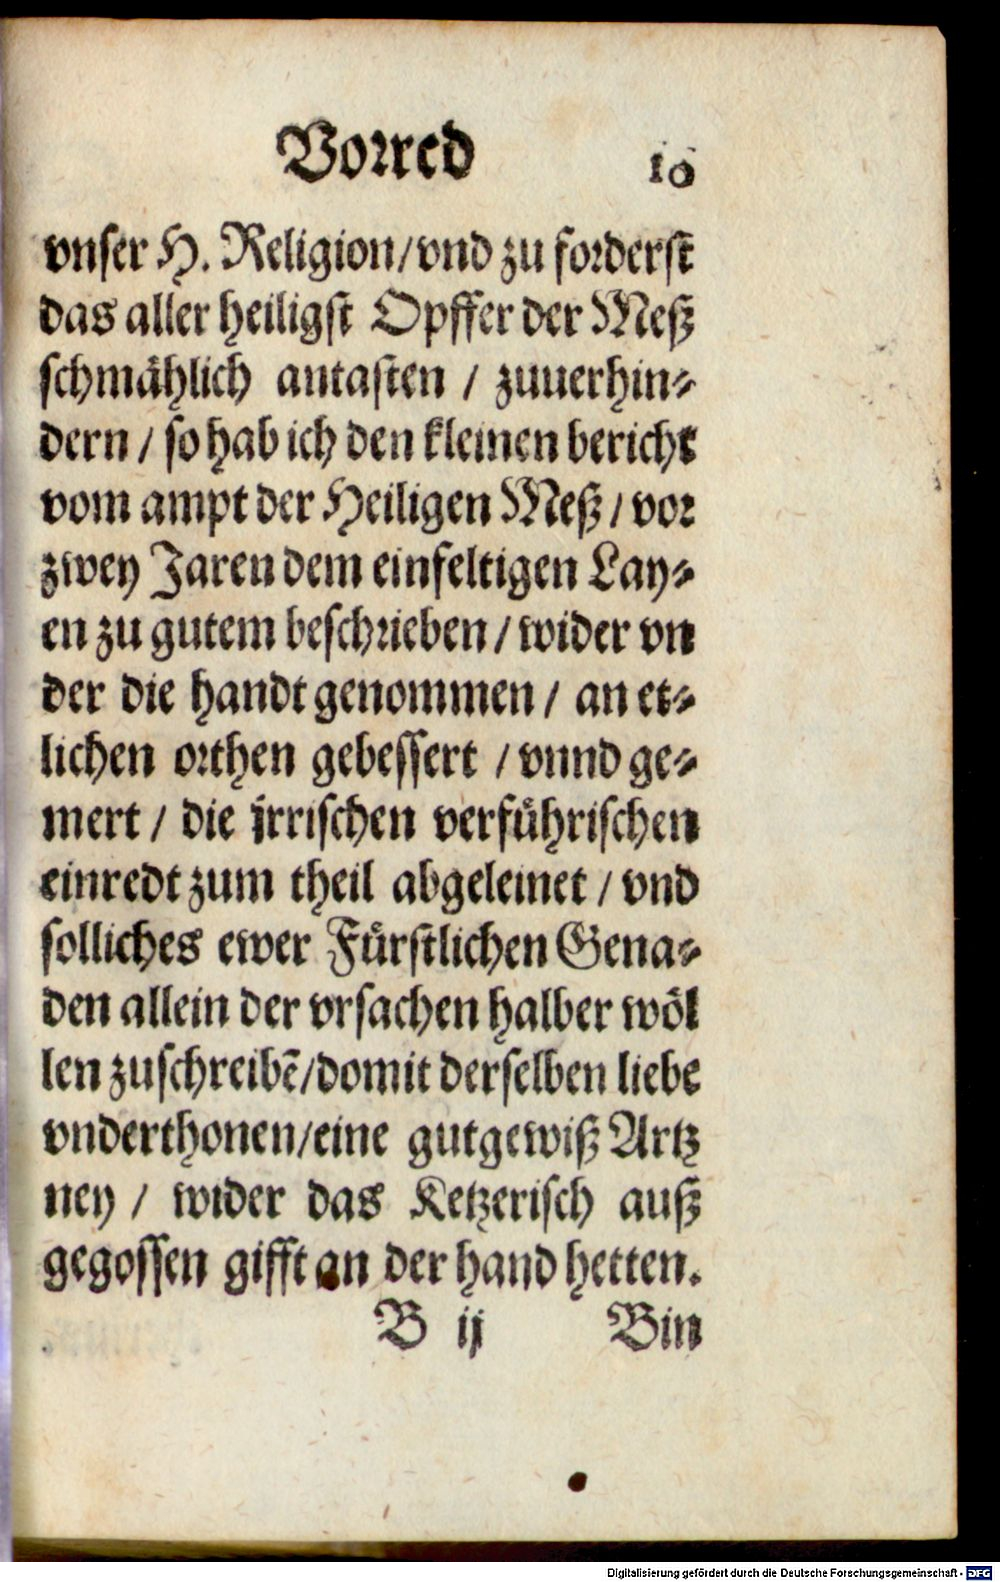 Vorred 10
vnser H. Religion/vnd zu forderst
das aller heiligst Opffer der Meß
schmählich antasten / zuuerhin⸗
dern / so hab ich den kleinen bericht
vom ampt der Heiligen Meß / vor
zwey Jaren dem einfeltigen Lay⸗
en zu gutem beschrieben / wider vn
der die handt genommen / an et⸗
lichen orthen gebessert / vnnd ge⸗
mert / die jrrischen verführischen
einredt zum theil abgeleinet / vnd
solliches ewer Fürstlichen Gena⸗
den allein der vrsachen halber wöl
len zuschreibẽ/domit derselben liebe
vnderthonen/eine gutgewiß Artz
ney / wider das Ketzerisch auß
gegossen gifft an der hand hetten.
B ij Bin
Digitalisierung gefördert durch die Deutsche Forschungsgemeinschaft - DFG